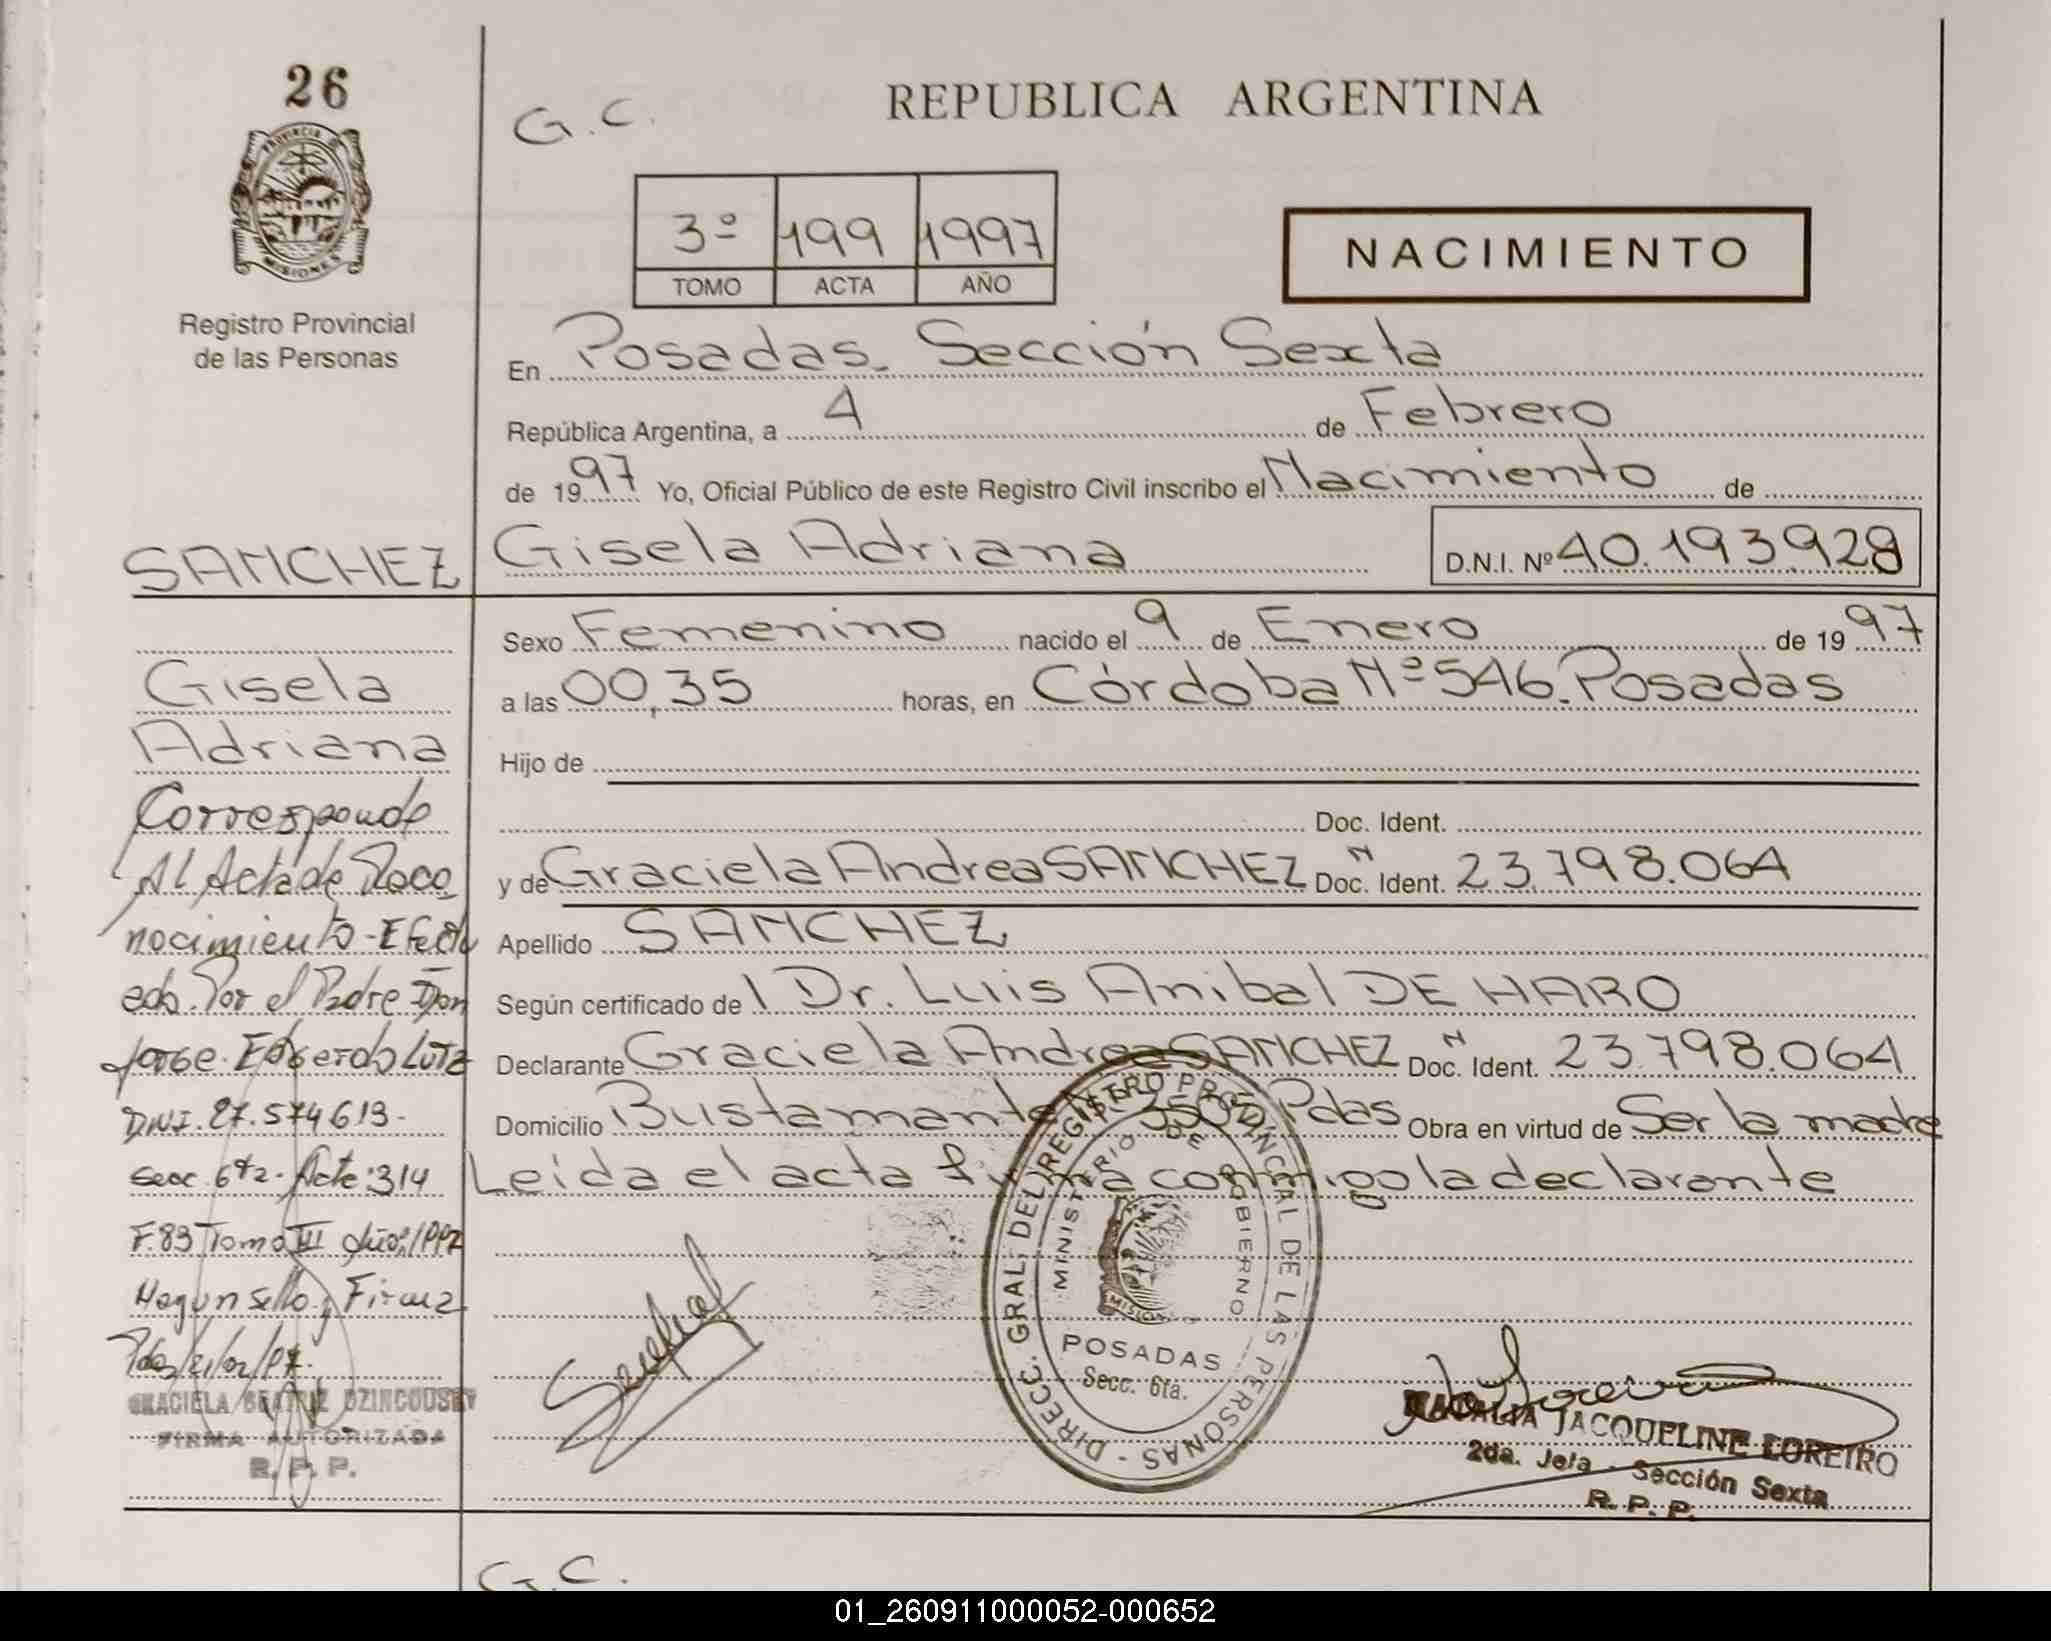 26
PROVINCIA DE
MISIONES
Registro Provincial
de las Personas
G.C.
REPUBLICA ARGENTINA
3º 199 1997
TOMO ACTA AÑO
NACIMIENTO
En Posadas. Sección Sexta
República Argentina, a 4 de Febrero
de 1997 Yo, Oficial Público de este Registro Civil inscribo el Nacimiento de
SANCHEZ Gisela Adriana D.N.I. Nº 40.193.928
Sexo Femenino nacido el 9 de Enero de 1997
a las 00,35 horas, en Córdoba Nº 546. Posadas
Hijo de
Doc. Ident.
y de Graciela Andrea SANCHEZ N Doc. Ident. 23.798.064
Apellido SANCHEZ
Según certificado del Dr. Luis Anibal DE HARO
Declarante Graciela Andrea SANCHEZ N Doc. Ident. 23.798.064
Domicilio Bustamante 3505 Pdas Obra en virtud de Ser la madre
Leida el acta firma conmigo la declarante
Gisela
Adriana
Corresponde
Al Acta de Reco
nocimiento-Efectu
ado. Por el Padre Don
Jorge. Edgardo Lutz
DNI. 27.574613-
Secc. 6ta. Acta: 314
F.83 Tomo III Año:1997
Hay un sello y Firma
Pdas/21/02/97.
GRACIELA BEATRIZ DZINCOUSKY
FIRMA AUTORIZADA
R. P. P.
DIRECC. GRAL. DEL REGISTRO PROVINCIAL DE LAS PERSONAS -
MINISTERIO DE GOBIERNO
MISIONES
POSADAS
Secc. 6ta.
NATALIA JACQUELINE LOREIRO
2da. Jefa - Sección Sexta
R. P. P.
G.C.
01_260911000052-000652